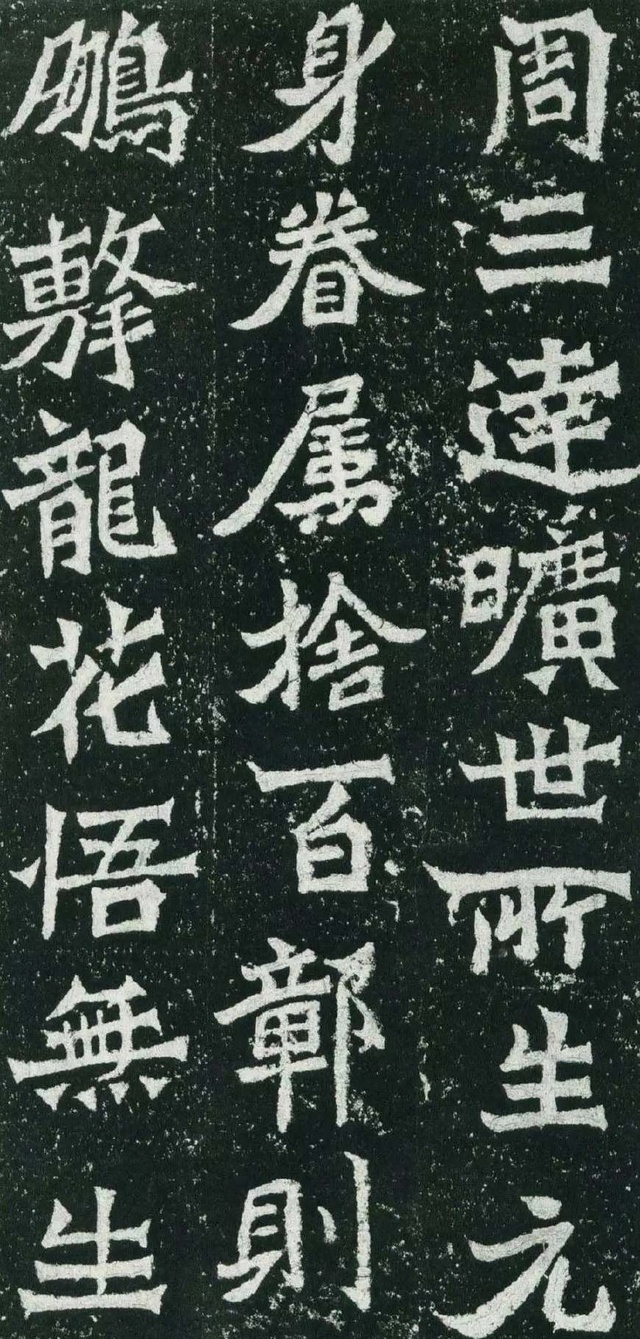 周三逹曠世所生元
身眷属捨百鄣則
鵬擊龍花悟無生